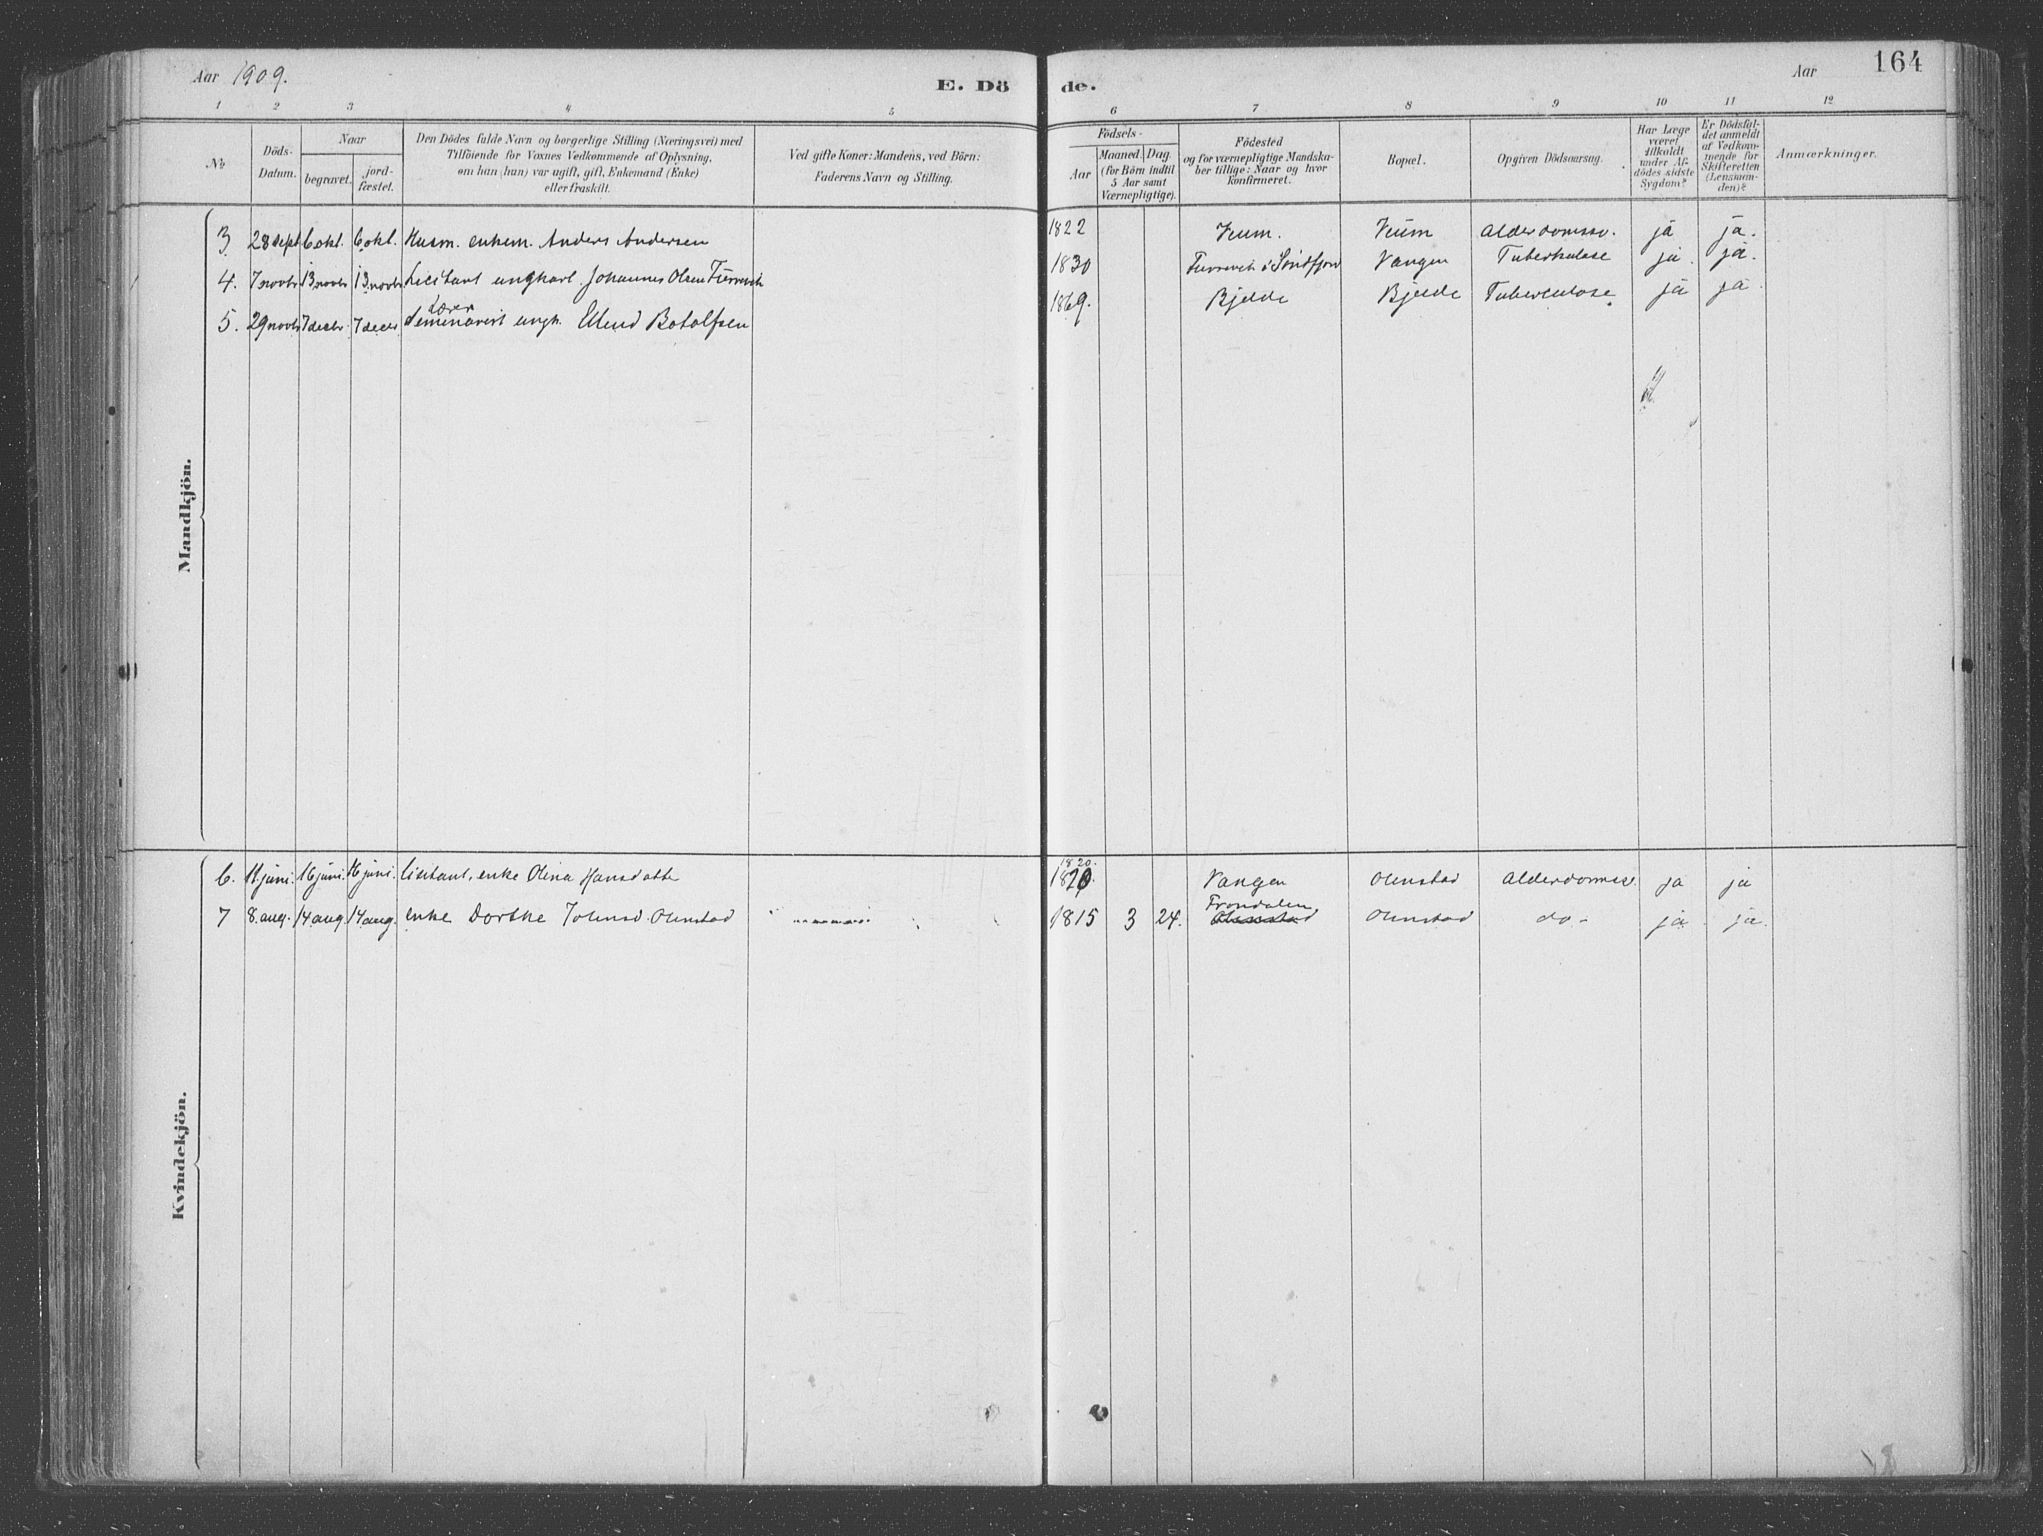 Aar 1909.
E. Dö de.
Aar
164
1 2 3 4 5 6 7 8 9 10 11 12
No
Döds-Datum.
Naar
begravet.
jord-fæstet.
Den Dödes fulde Navn og borgerlige Stilling (Næringsvei) med
Tilföiende for Voxnes Vedkommende af Oplysning,
om han (hun) var ugift, gift, Enkemand (Enke)
eller fraskilt.
Ved gifte Koner: Mandens, ved Börn:
Faderens Navn og Stilling.
Födsels-
Aar
Maaned. Dag.
(for Börn indtil
5 Aar samt
Værnepligtige).
Födested
og for værnepligtige Mandska-
ber tillige: Naar og hvor
Konfirmeret.
Bopæl.
Opgiven Dödsaarsag.
Har Læge
været
tilkaldt
under Af-
dödes sidste
Sygdom?
Er Dödsfal-
det anmeldt
af Vedkom-
mende for
Skifteretten
(Lensman-
den)?
Anmærkninger.
Mandkjön.
3. 28 sept 6 okt. 6 okt. Husm. enkem. Anders Andersen 1822 Veum. Veum Alderdomssv. ja ja.
4. 7 novbr 13 novbr 13 novbr Lecitant ungkarl. Johannes Olsen 1830 i Söndfjord Vangen Tuberkulose ja. ja.
Lærer
5. 29 novbr 7 decbr 7 decbr Seminarist ungk. Elend Botolfsen 1869. Bjelde Bjelde Tuberculose ja ja
Kvindekjön.
1820.
6. 11 juni. 16 juni. 16 juni. enke Olina Hansdatte 1820. Vangen Olnstad Alderdomssv. ja ja
Frondalen
7 8. aug. 14 aug. 14 aug. enke Dorthe Johnsd. Olnstad 1815 3 24. Olnstad Olnstad do- ja ja.